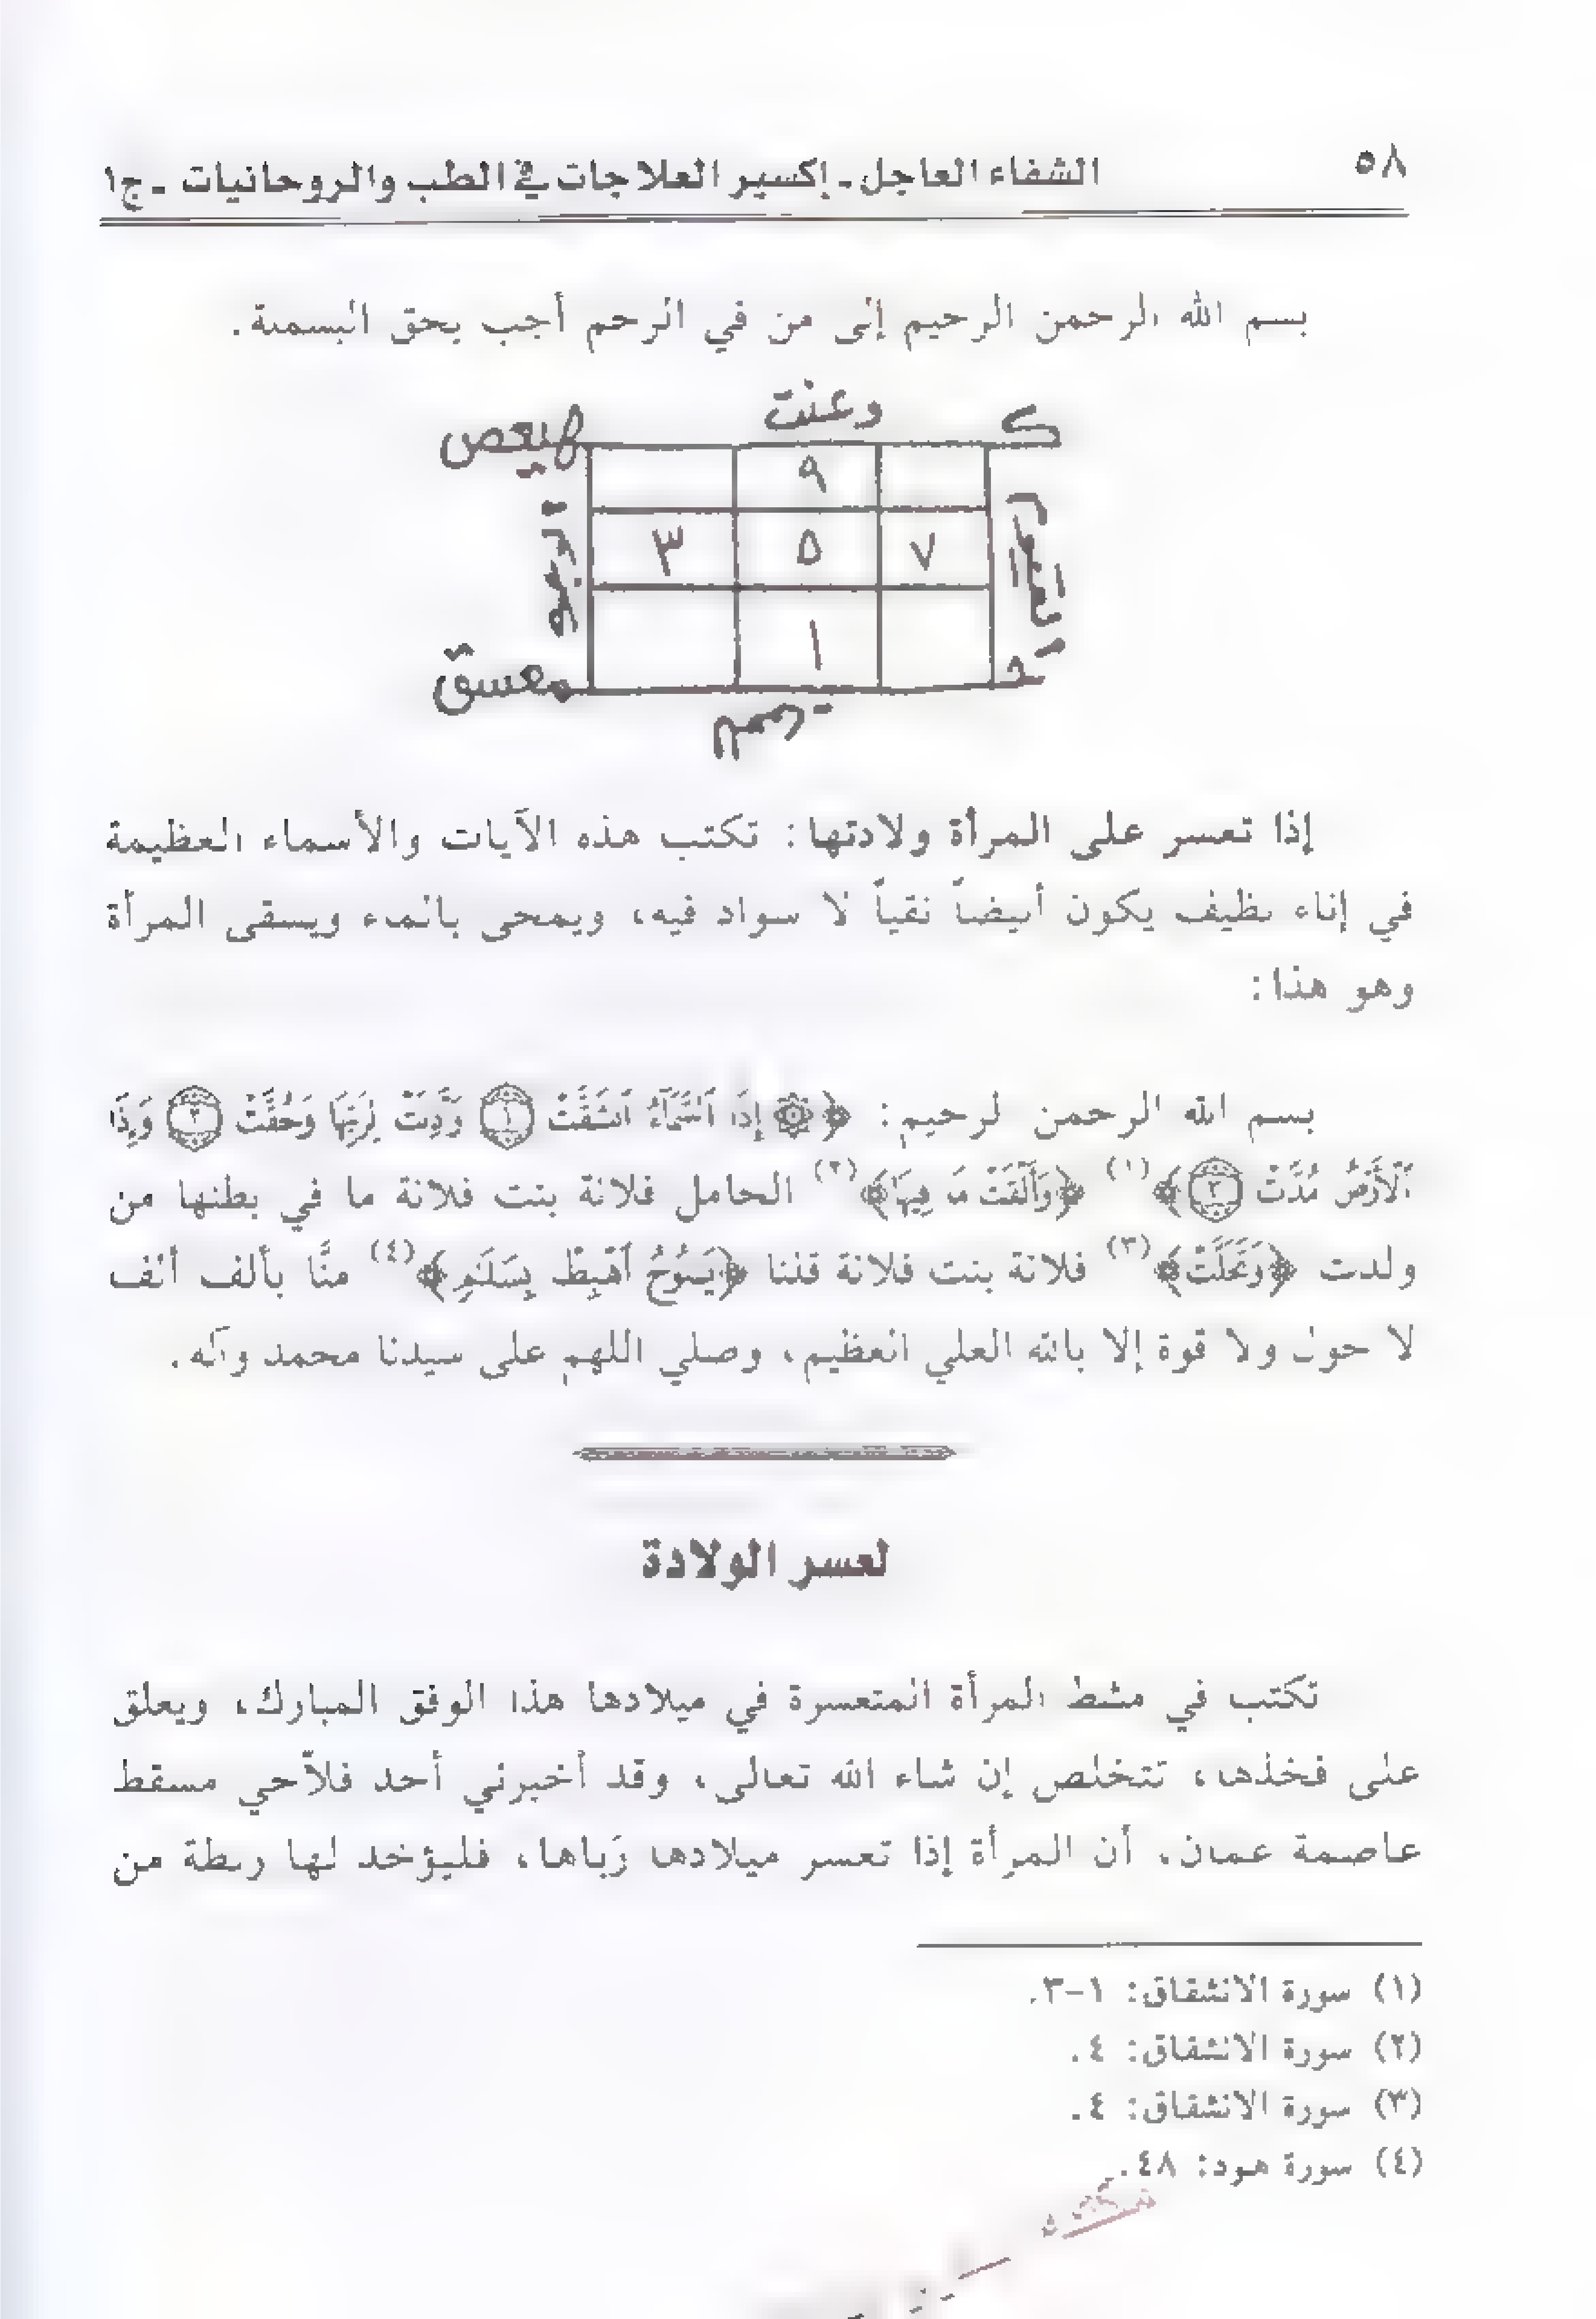 ٥٨
الشفاء العاجل ـ إكسير العلاجات في الطب والروحانيات ـ ج١
بسم الله الرحمن الرحيم إلى من في الرحم أجب بحق البسملة.
وعنت
ك
هيعص
٩
الوجوه
٧ ٥ ٣
القيوم
١
ح
معسق
للحي
إذا تعسر على المرأة ولادتها: تكتب هذه الآيات والأسماء العظيمة
في إناء نظيف يكون أبيضاً نقياً لا سواد فيه، ويمحى بالماء ويسقى المرأة
وهو هذا:
بسم الله الرحمن الرحيم: ﴿۞ إِذَا ٱلسَّمَآءُ ٱنشَقَّتْ ۝١ وَأَذِنَتْ لِرَبِّهَا وَحُقَّتْ ۝٢ وَإِذَا
ٱلْأَرْضُ مُدَّتْ ۝٣﴾(١) ﴿وَأَلْقَتْ مَا فِيهَا﴾(٢) الحامل فلانة بنت فلانة ما في بطنها من
ولدت ﴿وَتَخَلَّتْ﴾(٣) فلانة بنت فلانة قلنا ﴿يَـٰنُوحُ ٱهْبِطْ بِسَلَـٰمٍ﴾(٤) منَّا بألف ألف
لا حول ولا قوة إلا بالله العلي العظيم، وصلي اللهم على سيدنا محمد وآله.
لعسر الولادة
تكتب في مشط المرأة المتعسرة في ميلادها هذا الوفق المبارك، ويعلق
على فخذها، تتخلص إن شاء الله تعالى، وقد أخبرني أحد فلاّحي مسقط
عاصمة عمان، أن المرأة إذا تعسر ميلادها رَباها، فليؤخذ لها ربطة من
(١) سورة الانشقاق: ١-٣.
(٢) سورة الانشقاق: ٤.
(٣) سورة الانشقاق: ٤.
(٤) سورة هود: ٤٨.